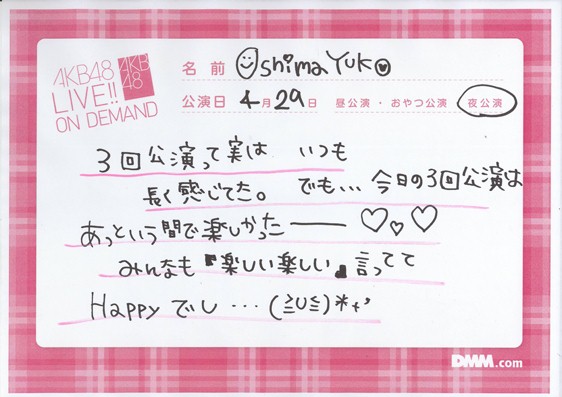 AKB48
LIVE!!
ON DEMAND
AKB
48
名前 Oshima Yuko
公演日 4月29日 昼公演・おやつ公演 夜公演
3回公演って実は いつも
長く感じてた。 でも… 今日の3回公演は
あっという間で楽しかった――♡♡♡
みんなも『楽しい楽しい』言ってて
Happyでし…(≧∪≦)*+'
DMM.com